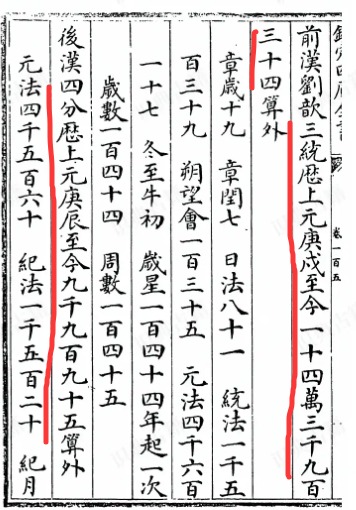 欽定四庫全書 卷一百五
前漢劉歆三統歴上元庚戌至今一十四萬三千九百
三十四算外
章歲十九 章閏七 日法八十一 統法一千五
百三十九 朔望會一百三十五 元法四千六百
一十七 冬至牛初 歲星一百四十四年起一次
歲數一百四十四 周數一百四十五
後漢四分歴上元庚辰至今九千九百九十五算外
元法四千五百六十 紀法一千五百二十 紀月